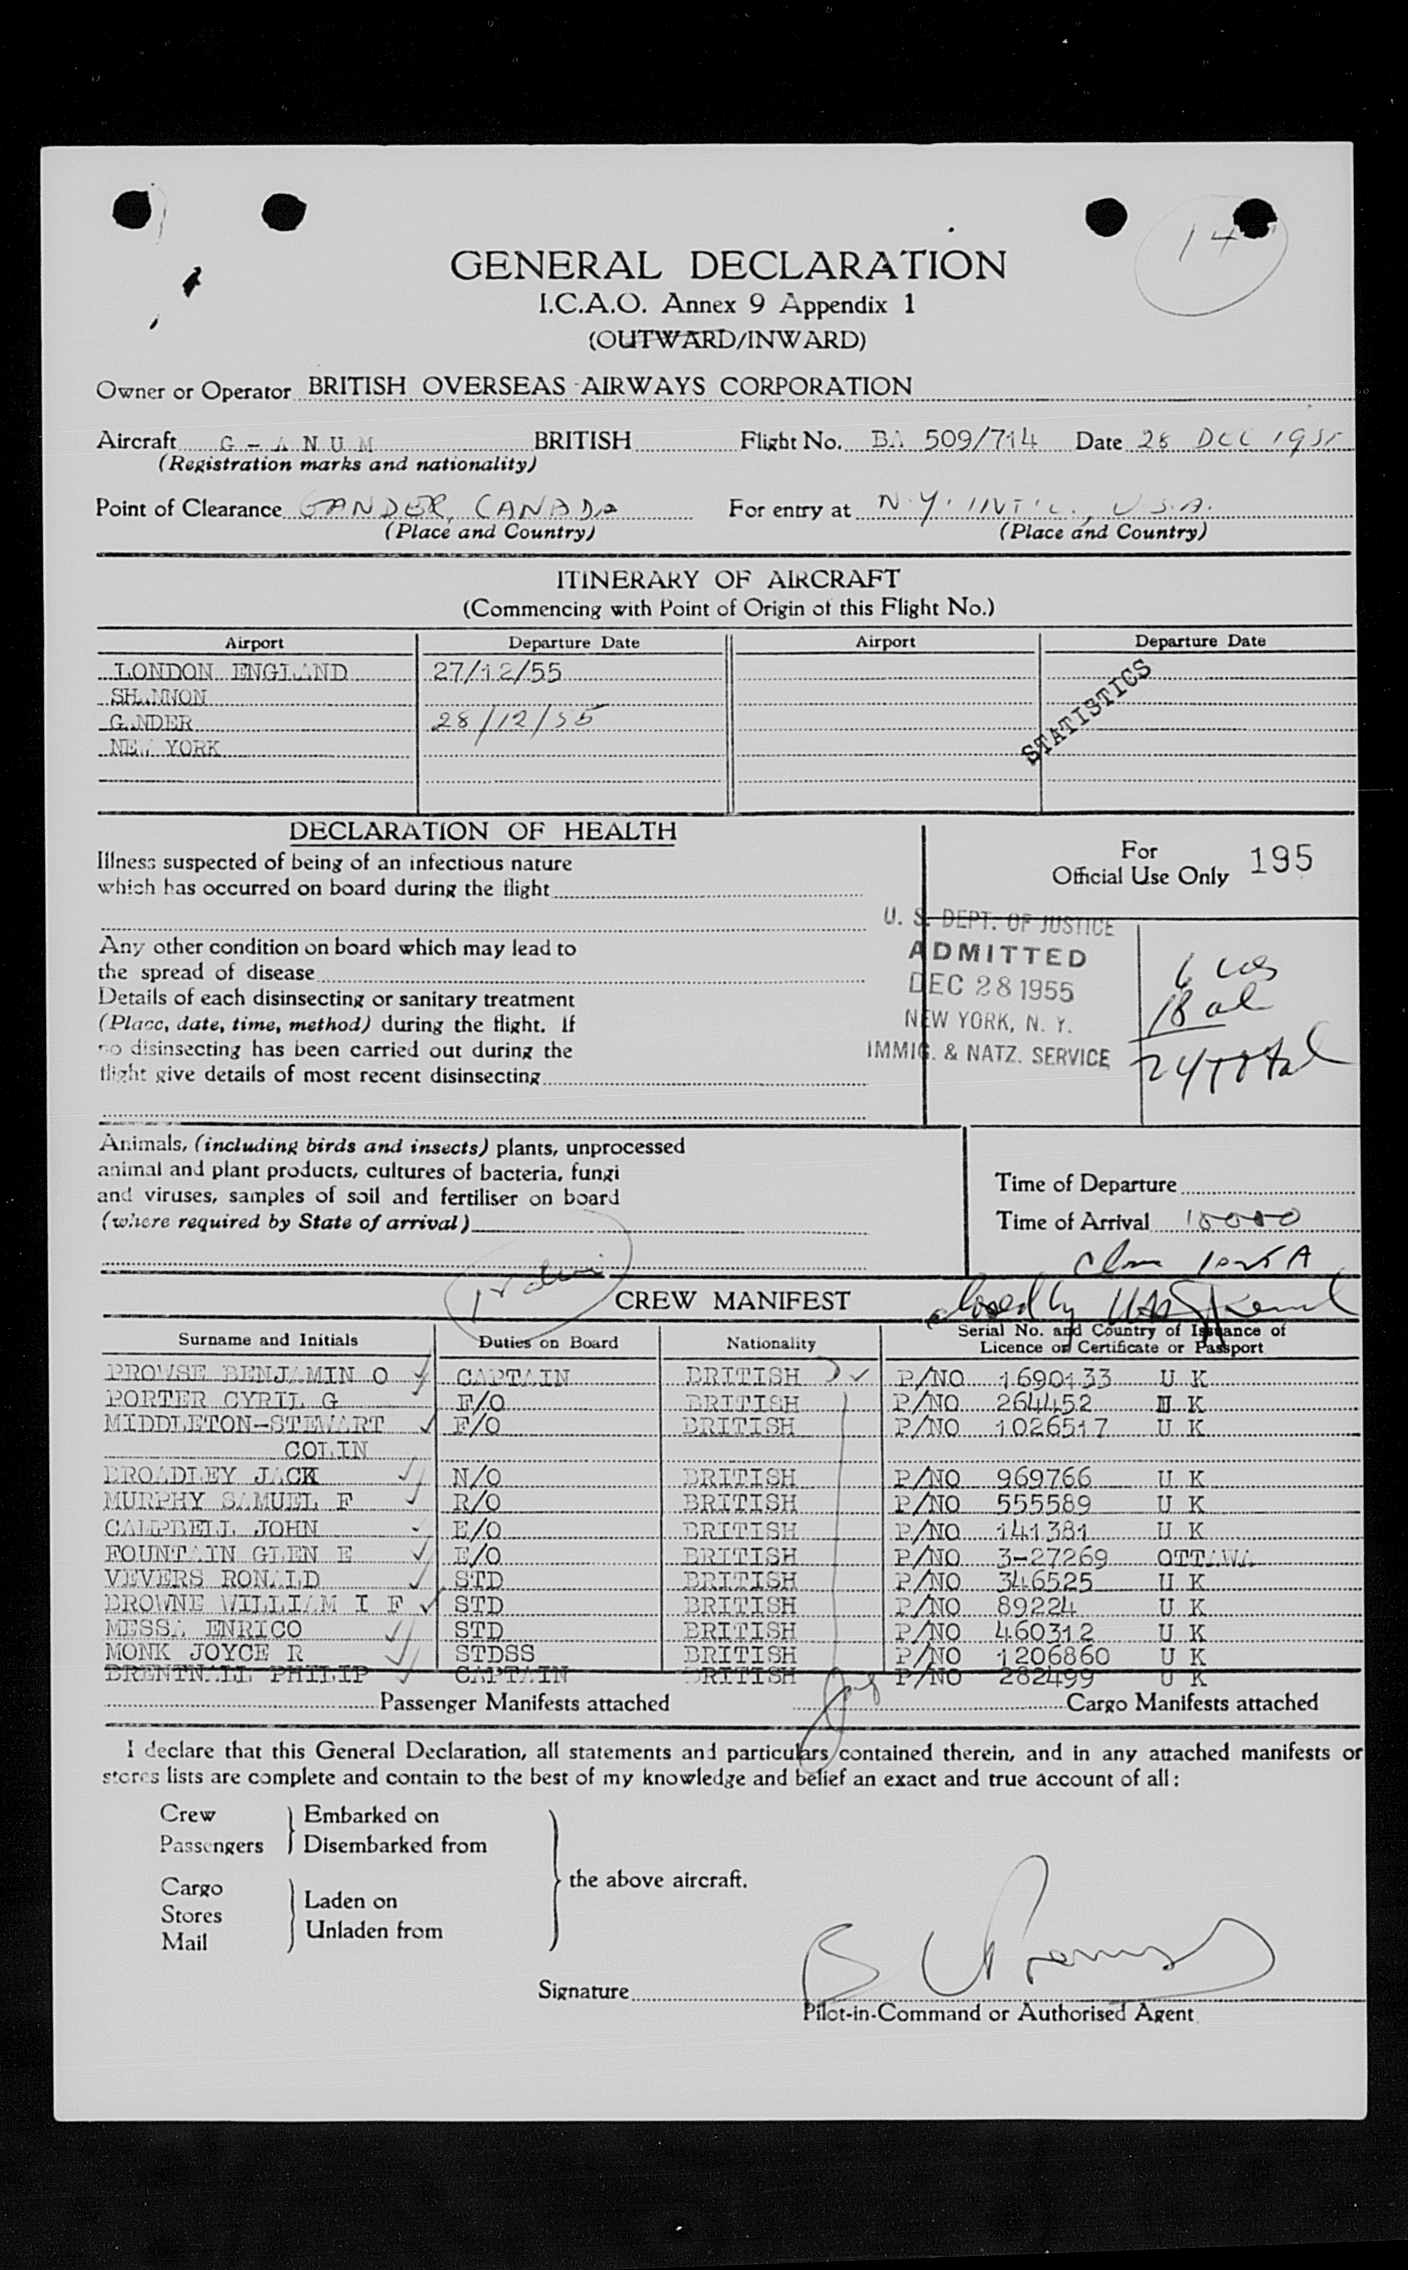 14
GENERAL DECLARATION
I.C.A.O. Annex 9 Appendix 1
(OUTWARD/INWARD)
Owner or Operator BRITISH OVERSEAS AIRWAYS CORPORATION
Aircraft G-ANUM BRITISH Flight No. BA 509/714 Date 28 DEC 1955
(Registration marks and nationality)
Point of Clearance GANDER, CANADA For entry at N.Y. INT'L., U.S.A.
(Place and Country) (Place and Country)
ITINERARY OF AIRCRAFT
(Commencing with Point of Origin of this Flight No.)
Airport Departure Date Airport Departure Date
LONDON ENGLAND 27/12/55
SHANNON
GANDER 28/12/55
NEW YORK
STATISTICS
DECLARATION OF HEALTH
Illness suspected of being of an infectious nature
which has occurred on board during the flight
Any other condition on board which may lead to
the spread of disease
Details of each disinsecting or sanitary treatment
(Place, date, time, method) during the flight. If
no disinsecting has been carried out during the
flight give details of most recent disinsecting
For
Official Use Only 195
U. S. DEPT. OF JUSTICE
ADMITTED
DEC 28 1955
NEW YORK, N. Y.
IMMIG. & NATZ. SERVICE
6 uos
18 al
24 Total
Animals, (including birds and insects) plants, unprocessed
animal and plant products, cultures of bacteria, fungi
and viruses, samples of soil and fertiliser on board
(where required by State of arrival)
Time of Departure
Time of Arrival
closed by
CREW MANIFEST
Surname and Initials Duties on Board Nationality Serial No. and Country of Issuance of
Licence or Certificate or Passport
PROWSE BENJAMIN O CAPTAIN BRITISH P/NO 1690133 U K
PORTER CYRIL G F/O BRITISH P/NO 264452 U K
MIDDLETON-STEWART F/O BRITISH P/NO 1026517 U K
COLIN
BROADLEY JACK N/O BRITISH P/NO 969766 U K
MURPHY SAMUEL F R/O BRITISH P/NO 555589 U K
CAMPBELL JOHN E/O BRITISH P/NO 141381 U K
FOUNTAIN GLEN E E/O BRITISH P/NO 3-27269 OTTAWA
VEVERS RONALD STD BRITISH P/NO 346525 U K
BROWNE WILLIAM I F STD BRITISH P/NO 89224 U K
MESSA ENRICO STD BRITISH P/NO 460312 U K
MONK JOYCE R STDSS BRITISH P/NO 1206860 U K
BRENTNALL PHILIP CAPTAIN BRITISH P/NO 282499 U K
Passenger Manifests attached Cargo Manifests attached
I declare that this General Declaration, all statements and particulars contained therein, and in any attached manifests or
stores lists are complete and contain to the best of my knowledge and belief an exact and true account of all:
Crew Embarked on
Passengers Disembarked from
the above aircraft.
Cargo Laden on
Stores Unladen from
Mail
Signature
Pilot-in-Command or Authorised Agent